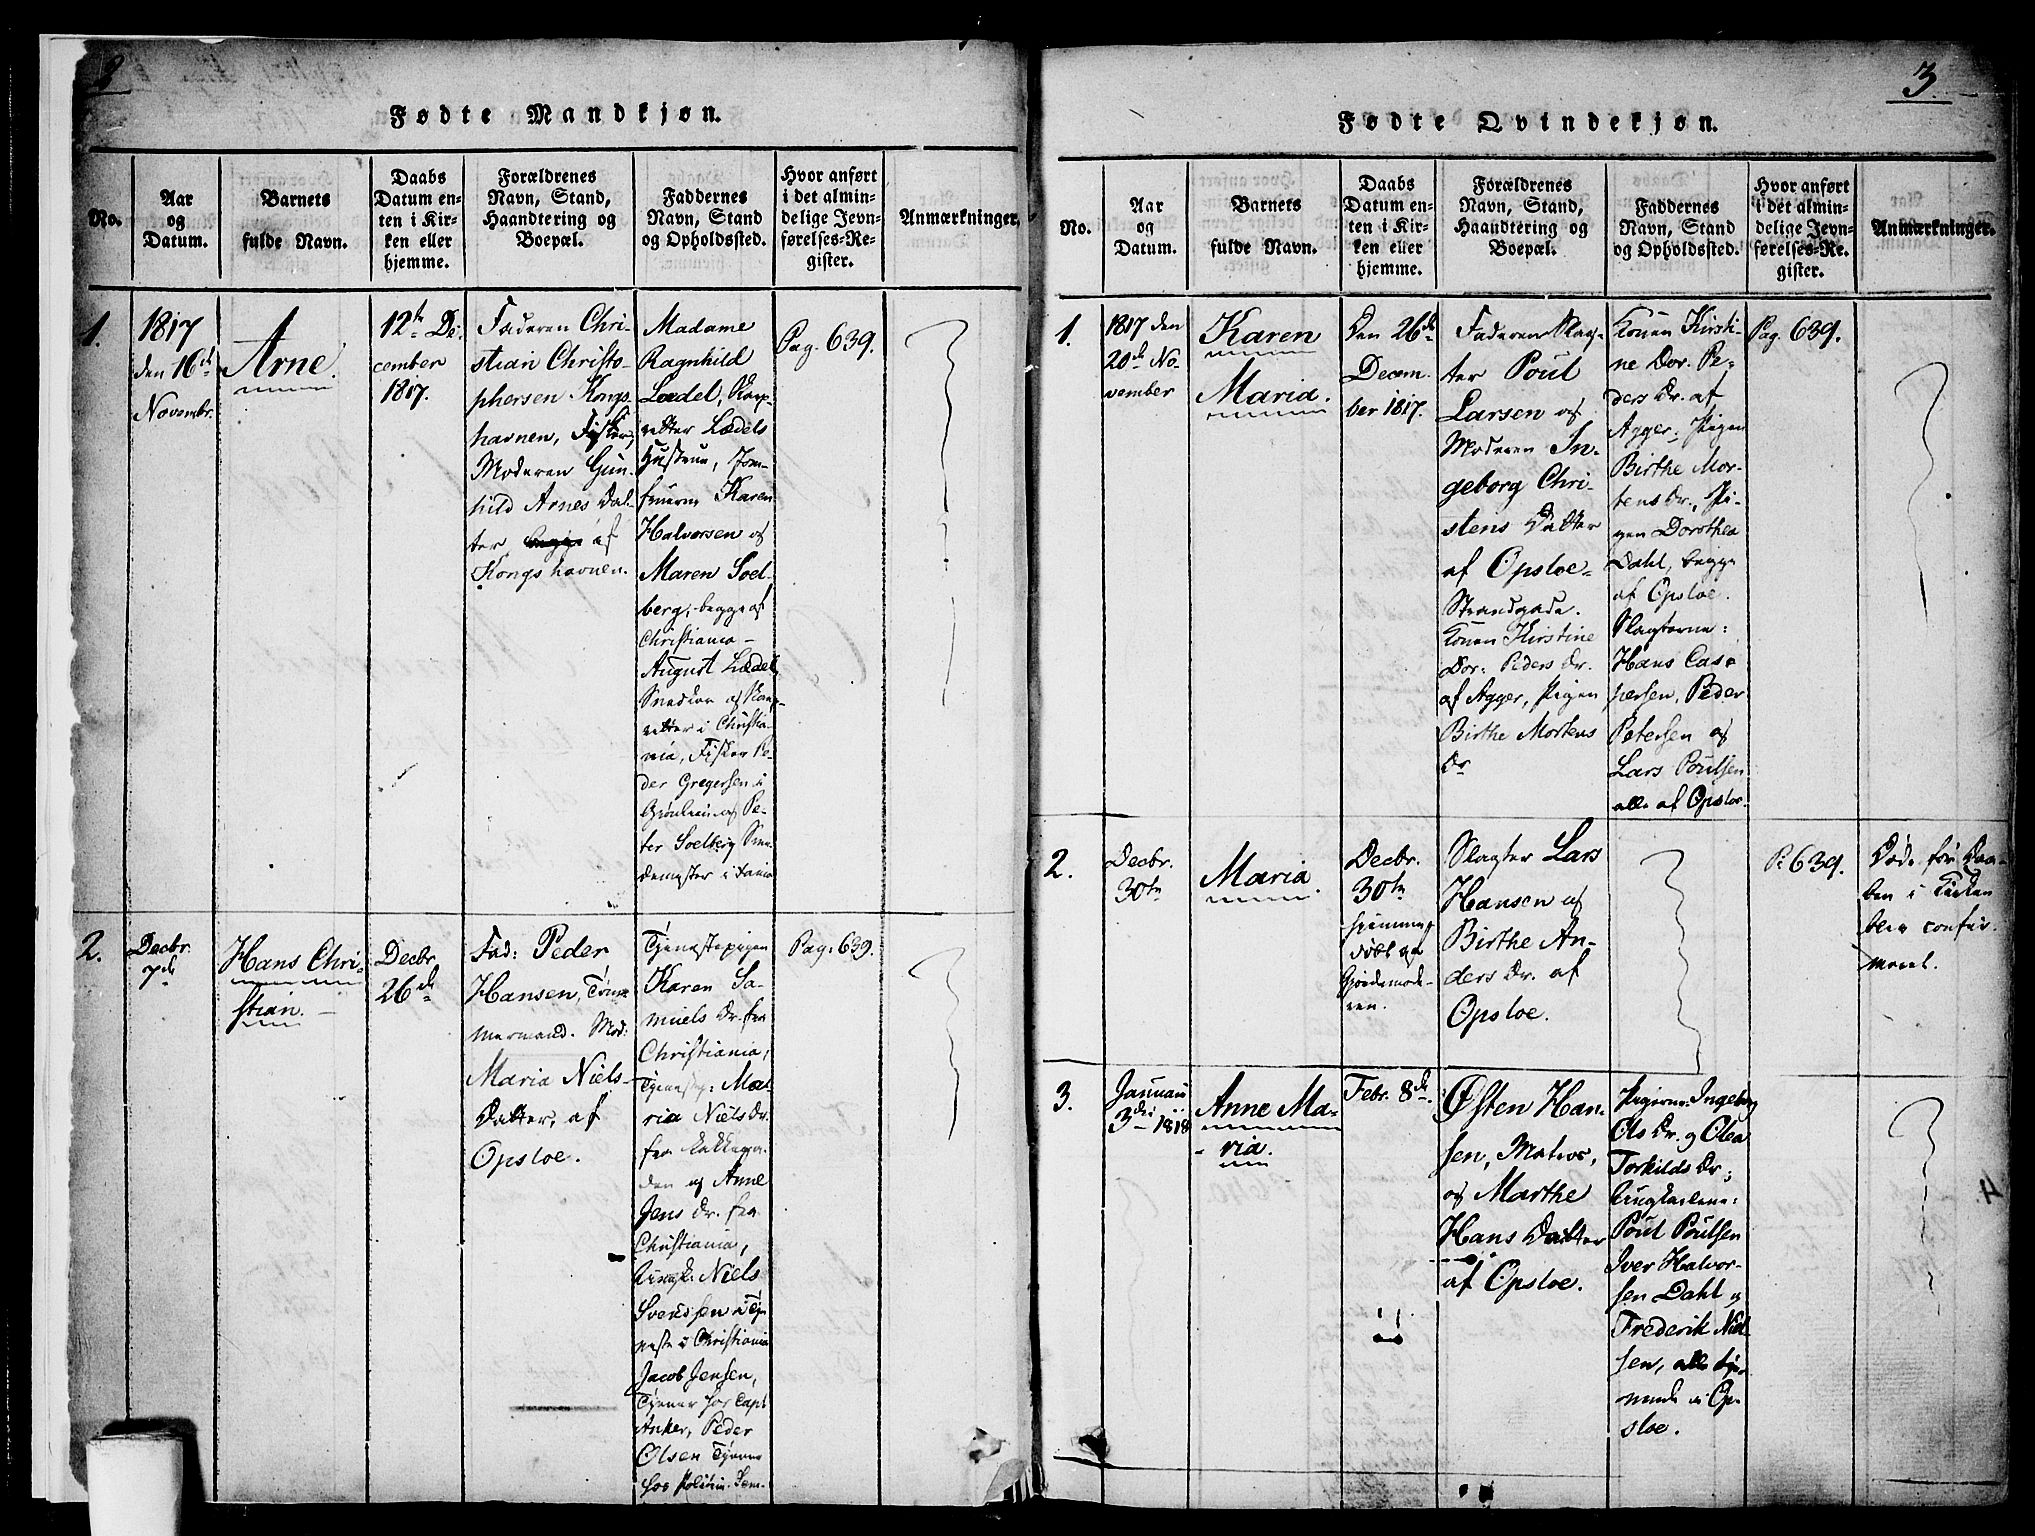 2
Fødte Mandkjøn.
No.
Aar
og
Datum.
Barnets
fulde Navn.
Daabs
Datum en-
ten i Kir-
ken eller
hjemme.
Forældrenes
Navn, Stand,
Haandtering og
Boepæl.
Faddernes
Navn, Stand
og Opholdssted.
Hvor anført
i det almin-
delige Jevn-
førelses-Re-
gister.
Anmærkninger.
1.
1817
den 16de
Novembr.
Arne.
12te De-
cember
1817.
Faderen Chri-
stian Christo-
phersen Kongs-
havnen, Fisker,
Moderen Gun-
hild Arnes Dat-
ter begge af
Kongshavnen.
Madame
Ragnhild
Lædel,
Lædels
Hustrue, Jom-
fruerne Karen
Halvorsen og
Maren Soel-
berg, begge af
Christiania –
August Lædel,
i Christia-
nia, Fisker Pe-
der Gregersen i
Grønlien og Pe-
ter Soelberg
i
Pag. 639.
2.
Decbr.
7de
Hans Chri-
stian. –
Decbr.
26de
Fad: Peder
Hansen, Tøm-
mermand. Mod:
Maria Niels-
Datter, af
Opsloe.
Tjenestepigen
Karen Sa-
muels Dr. fra
Christiania,
Tjenestep: Ma-
ria Niels Dr.
fra
og Anne
Jens Dr. fra
Christiania,
Ungk: Niels
Svendsen i Tje-
neste i Christiania
Jacob Jensen,
Tjener hos Capt
Anker, Peder
Olsen Tjener
hos
Pag. 639.
3.
Fødte Qvindekjøn.
No.
Aar
og
Datum.
Barnets
fulde Navn.
Daabs
Datum en-
ten i Kir-
ken eller
hjemme.
Forældrenes
Navn, Stand,
Haandtering og
Boepæl.
Faddernes
Navn, Stand
og Opholdssted.
Hvor anført
i det almin-
delige Jevn-
førelses-Re-
gister.
Anmærkninger.
1.
1817 den
20de No-
vember
Karen
Maria.
Den 26de
Decem-
ber 1817.
Faderen Slag-
ter Poul
Larsen og
Moderen In-
geborg Chri-
stens Datter
af Opsloe-
Strandgade.
Konen Kirstine
Dor: Peders Dr.
af Agger, Pigen
Birthe Mortens
Dr
Konen Kirsti-
ne Dor. Pe-
ders Dr. af
Agger, Pigen
Birthe Mor-
tens Dr., Pi-
gen Dorothea
Dahl, begge
af Opsloe.
Slagterne:
Hans Cas-
persen, Peder
Petersen og
Lars Poulsen
alle af Opsloe.
Pag. 639.
2.
Decbr.
30te
Maria.
Decbr.
30te
hjemme
døbt af
Gjordemode-
ren.
Slagter Lars
Hansen og
Birthe An-
ders Dr. af
Opsloe.
P: 639.
Døde før Daa-
ben i Kirken
blev confir-
meret.
3.
Januari
3die 1818
Anne Ma-
ria.
Febr. 8de
Østen Han-
sen, Matros,
og Marthe
Hans Datter
af Opsloe.
Pigerne: Ingeborg
Ols Dr. og Olea
Torkilds Dr;
Ungkarlene:
Poul Poulsen
Iver Halvor-
sen Dahl og
Frederik Niel-
sen, alle tje-
nende i Op-
sloe.